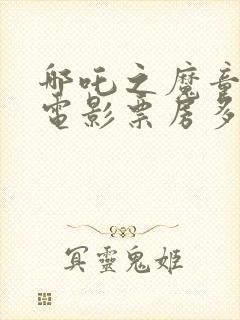 哪吒之魔童
電影票房多
冥靈鬼姬